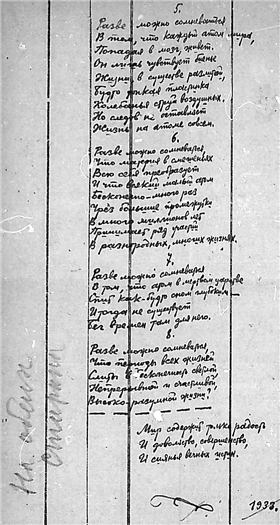 5.
Разве можно сомневаться
В том, что каждый атом мира,
Попадая в мозг, живет.
Он лишь чувствует
Жизни в существе разумном,
Будто
Колебанья струй воздушных,
Но следов не оставляет
Жизнь на атоме совсем.
6.
Разве можно сомневаться,
Что материя в смешеньях
Всю себя преобразует
И что всякий малый атом
Бесконечно-много раз
Чрез большие промежутки
В много миллионов лет
Принимает раз участье
В разнородных, многих жизнях.
7.
Разве можно сомневаться
В том, что атом в мертвом царстве
Спит как-будто сном глубоким
И тогда не существует
Бег времен там для него.
8.
Разве можно сомневаться,
Что периоды всех жизней
Слиты в бесконечный светлой
Непрерывной и счастливой,
Высоко-разумной жизни,
Мир содержит только радость
И довольство, совершенство,
И сиянье вечных
193
На обе